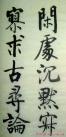 閑處沉默寂
寥求古尋論